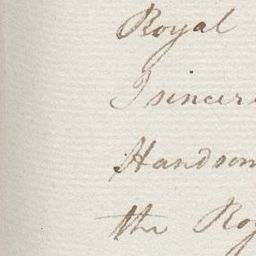 Royal
I sincer
Handsom
the Roy